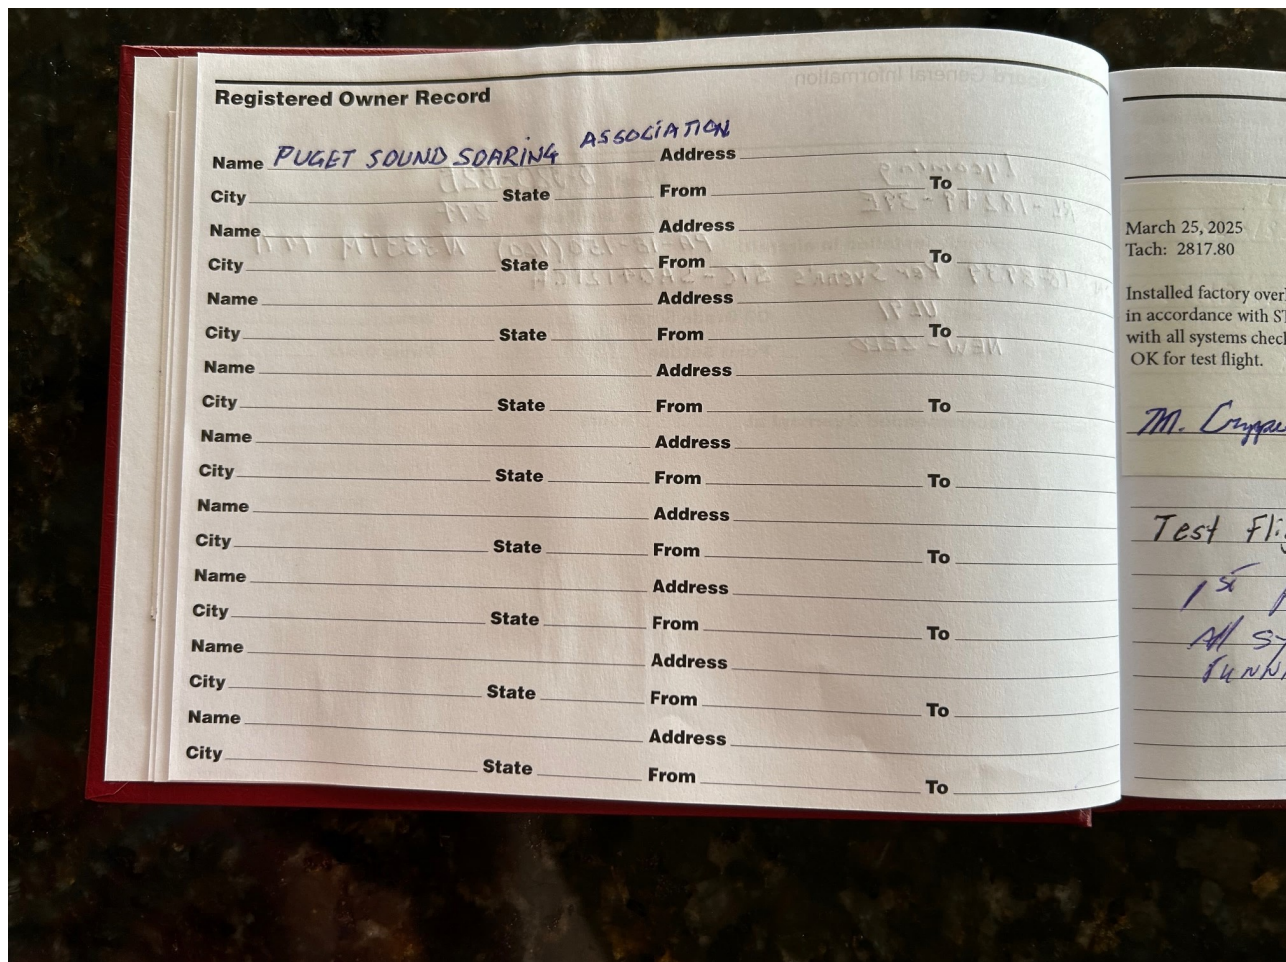 Registered Owner Record
Name PUGET SOUND SOARING ASSOCIATION Address
City State From To
Name Address
City State From To
Name Address
City State From To
Name Address
City State From To
Name Address
City State From To
Name Address
City State From To
Name Address
City State From To
Name Address
City State From To
Name Address
City State From To
March 25, 2025
Tach: 2817.80
Installed factory
in accordance with
with all systems
OK for test flight.
M.
Test
1st
All